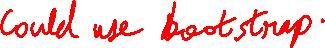 Could use bootstrap.